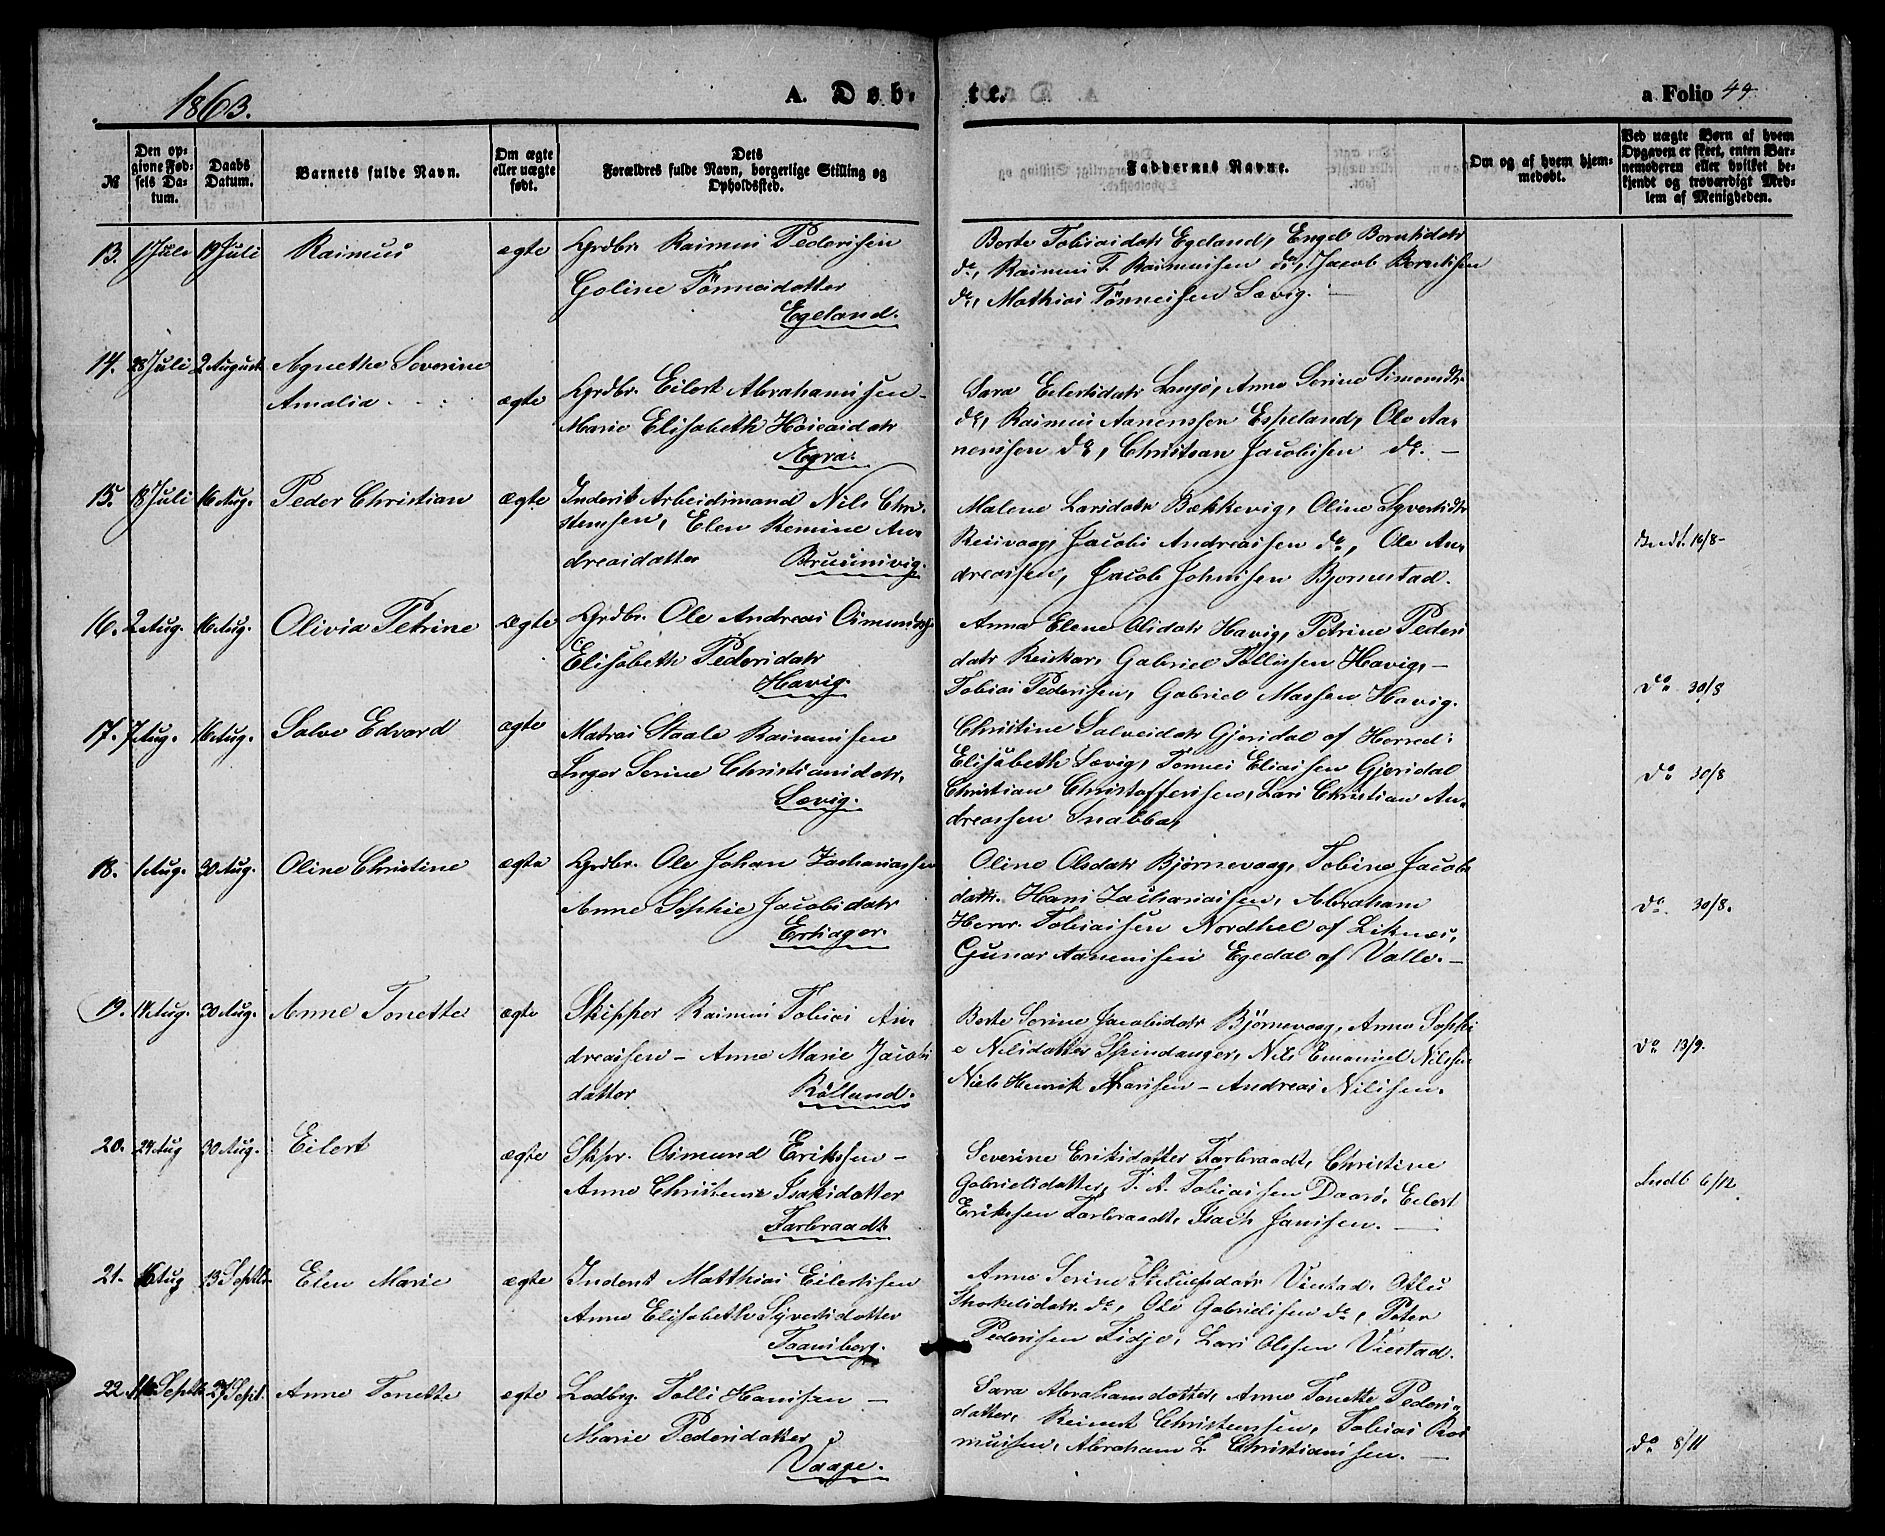 1863.
A. Døb-
te.
a Folio 49.
№
Den op-
givne Fød-
sels Da-
tum.
Daabs
Datum.
Barnets fulde Navn.
Om ægte
eller uægte
født.
Dets
Forældres fulde Navn, borgerlige Stilling og
Opholdssted.
Faddernes Navne.
Om og af hvem hjem-
medøbt.
Ved uægte Børn af hvem
Opgaven er skeet, enten Bar-
nemoderen eller hvilket be-
kjendt og troværdigt Med-
lem af Menigheden.
13. 1 Juli 19 Juli Rasmus ægte Grdbr. Rasmus Pedersen
Goline Tønnesdatter
Egeland.
Berte Tobiasdatr Egeland, Engel Berntsdatr
do, Rasmus T. Rasmussen do, Jacob Berntsen
do, Mathias Tønnesen Sævig. —
14. 28 Juli 2 August Agnethe Severine
Amalia ægte Grdbr. Eilert Abrahamsen
Marie Elisabeth Høieasdatr
Agra.
Sara Eilertsdatr Langø, Anne Serine Simonsdtr
do, Rasmus Aanenssen Espeland, Ole Aa-
nenssen do, Christian Jacobsen do. —
15. 18 Juli 16 Aug. Peder Christian ægte Inderst Arbeidsmand Nils Chri-
stensen, Elen Remine An-
dreasdatter Bruunsvig.
Malene Larsdatr Bækkevig, Oline Syvertsdtr
Reisvaag, Jacob Andreassen do, Ole An-
dreassen, Jacob Johnsen Bjørnestad.
Indt. 16/8 -
16. 2 Aug. 16 Aug. Olivia Petrine ægte Grdbr. Ole Andreas Osmunds
Elisabeth Pedersdatr
Havig.
Anna Elene Olsdatr Havig, Petrine Peders
datr Reiskar, Gabriel Tollissen Havig, —
Tobias Pedersen, Gabriel Massen Havig.
do 30/8
17. 7 Aug. 16 Aug. Salve Edvard ægte Matros Staale Rasmussen
Inger Serine Christiansdatr.
Sævig.
Christine Salvesdatr Gjersdal af Herred:
Elisabeth Sævig, Tønnes Eliassen Gjersdal
Christian Christoffersen, Lars Christian An-
dreassen Snabba,
do 30/8
18. 1 Aug. 30 Aug. Oline Christine ægte Grdbr. Ole Johan Zachariassen
Anne Sophie Jacobsdatr
Ersager.
Oline Olsdatr Bjørnevaag, Tobine Jacobs
datr. Hans Zachariassen, Abraham
Herm. Tobiassen Nordhel af Liknes,
Gunar Aanensen Egedal af Valle. —
do 30/8.
19. 14 Aug. 30 Aug. Anne Tonette ægte Skipper Rasmus Tobias An-
dreassen — Anne Marie Jacobs
datter Rølland.
Berte Serine Jacobsdatr Bjørnevaag, Anne Sophi
e Nilsdatter Spindanger, Nils Emanuel Nilssen
Niels Henrik Larsen — Andreas Nilsen.
do 13/9.
20. 24 Aug 30 Aug. Eilert ægte Skpr. Osmund Erikssen —
Anne Christense Isaksdatter
Farbraadt
Severine Eriksdatter Farbraadt, Christine
Gabrielsdatter, T. A. Tobiassen Daarø, Eilert
Erikssen Farbraadt, Isach Jansen. —
Indb 6/12
21. 16 Aug 13 Septbr. Elen Marie ægte Inderst Matthias Eilertsen
Anne Elisabeth Syvertsdatter
Taansberg.
Anne Serine Vinstad.
Thorkelsdatr. do, Ole Gabrielsen do, Peter
Pedersen Fidje, Lars Olssen Viestad.
22. 11 Septb 27 Sept. Anne Tonette ægte Lodbrg. Tolli Hansen —
Marie Pedersdatter
Vaage.
Sara Abrahamsdatter, Anne Tonette Peders-
datter, Reinert Christenssen, Tobias Ras
mussen, Abraham L Christiansen. —
do 8/11